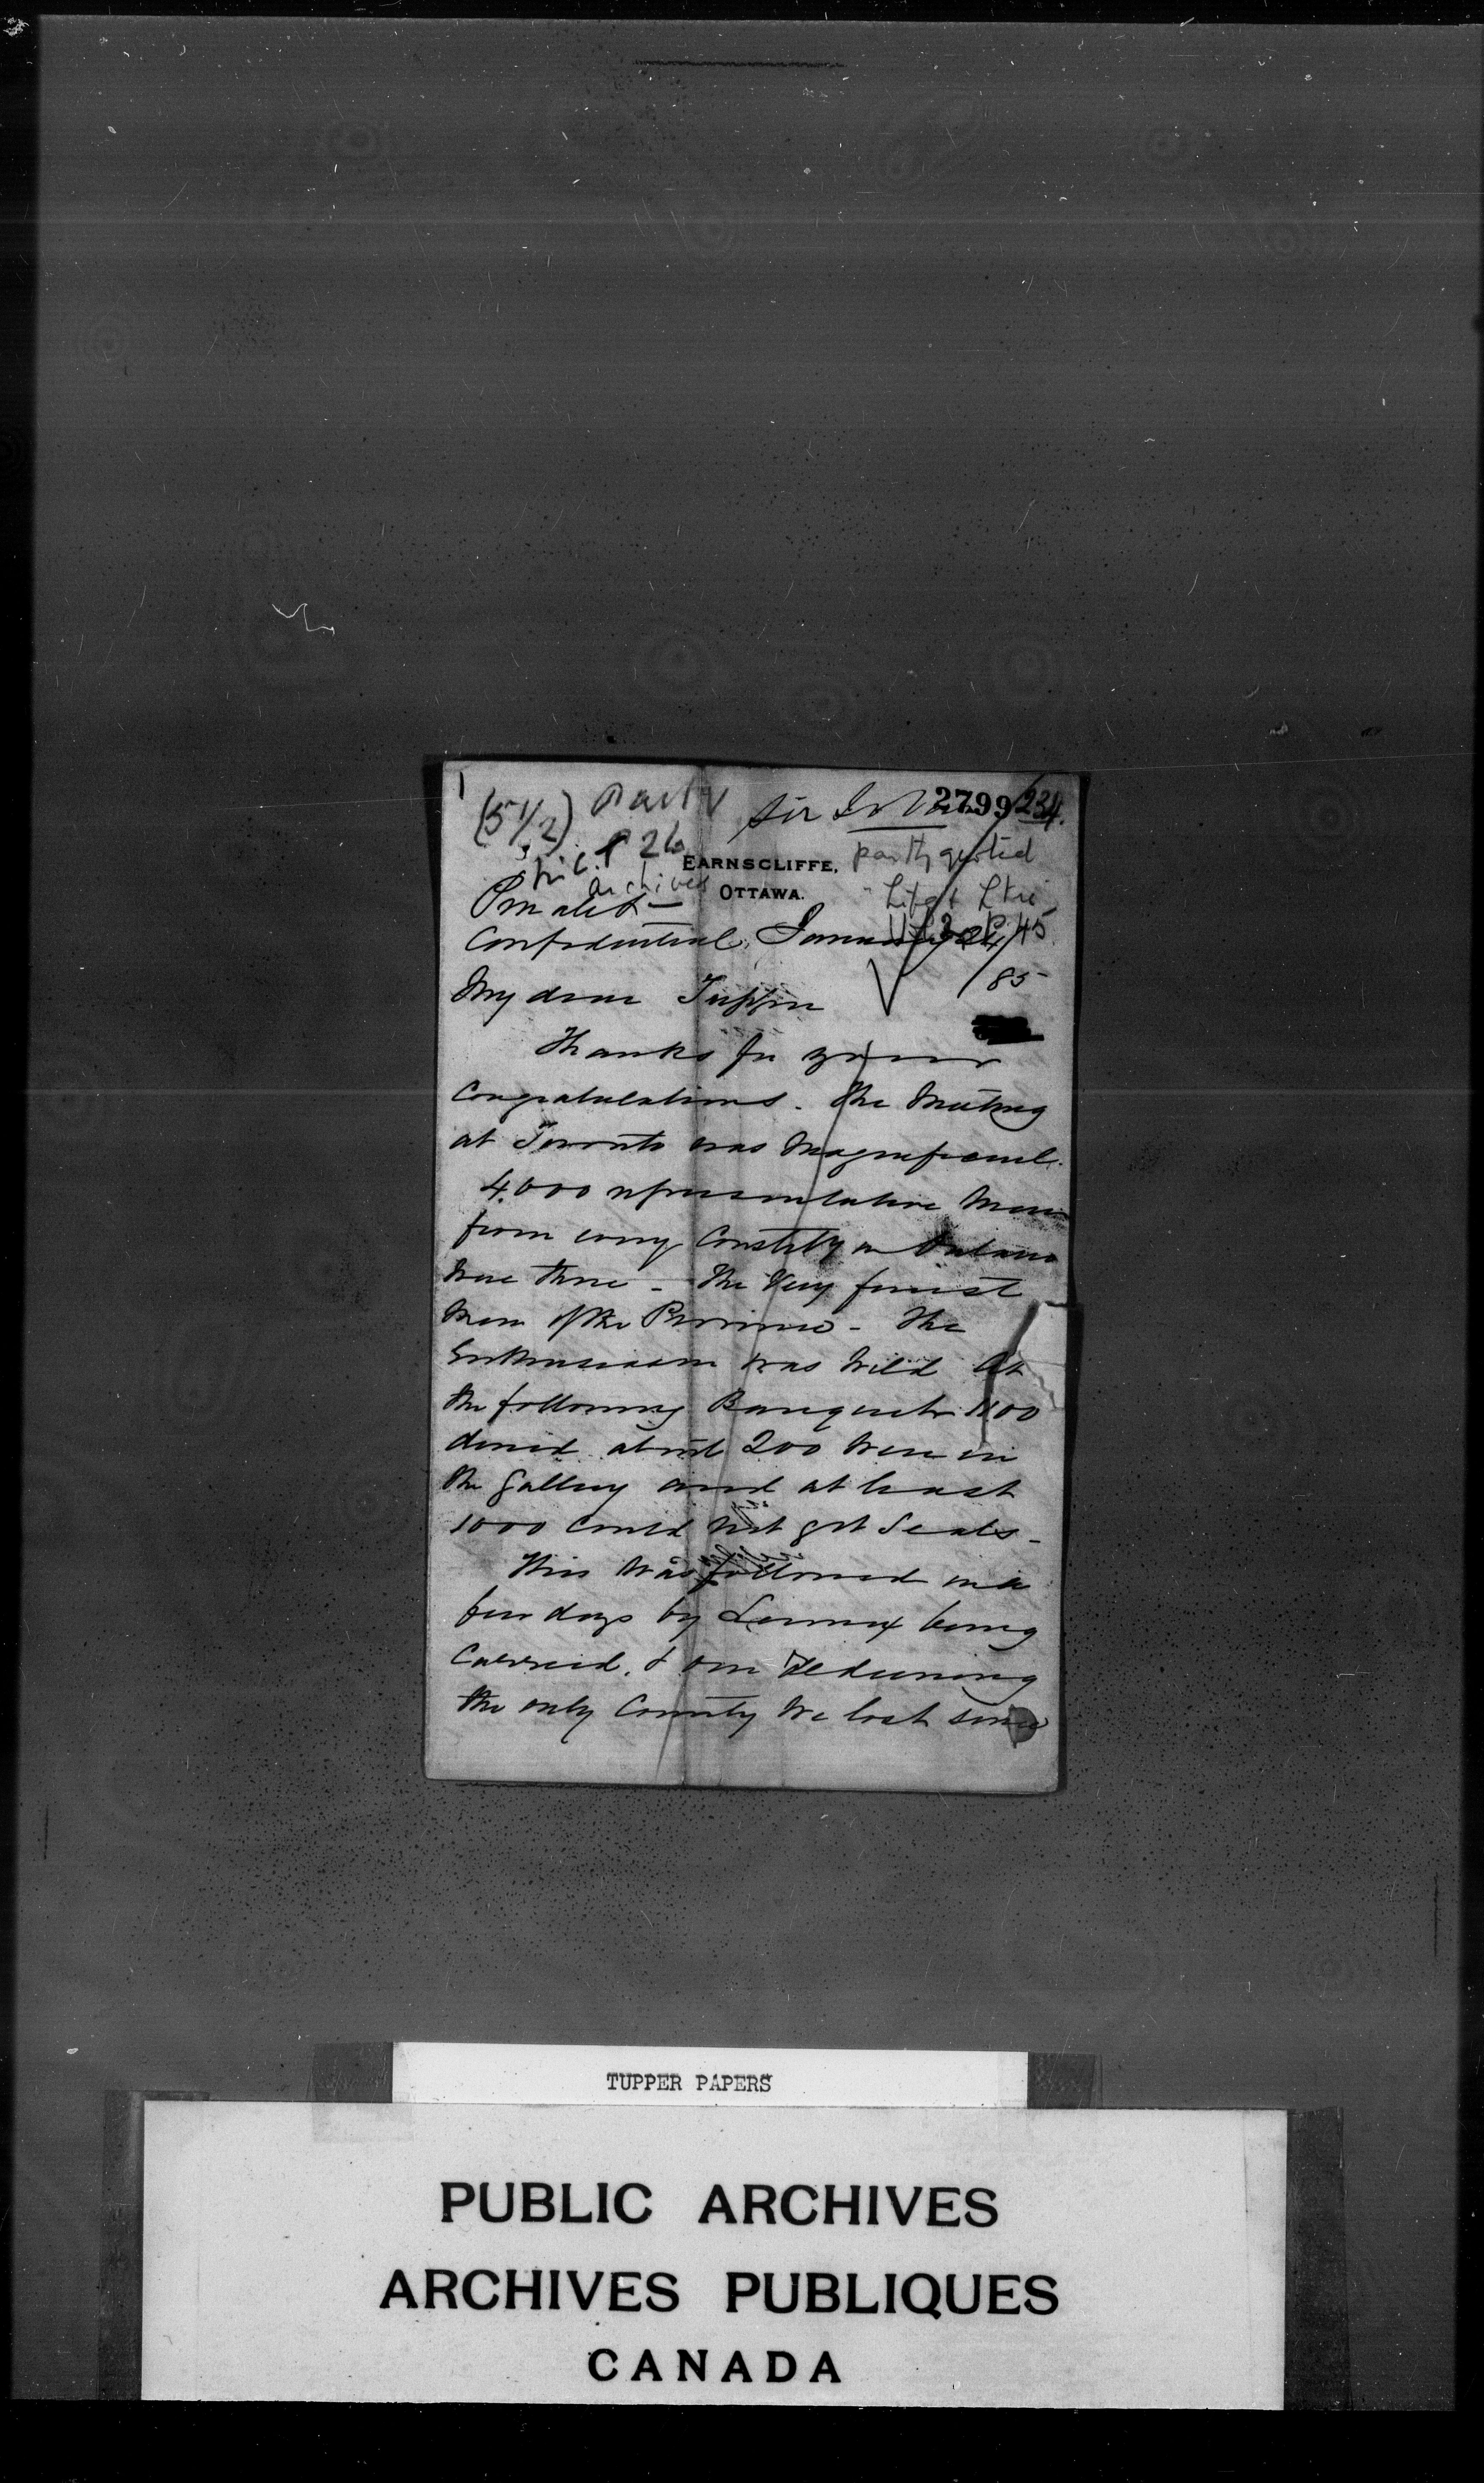 1
(5 1/2) Partly
Sir John 2799 234.
p 26
archives
EARNSCLIFFE,
OTTAWA.
partly quoted
Life & Lttrs
45
Private &
Confidential. January 24/85
My dear Tupper
Thanks for your
Congratulations. The Meeting
at Toronto was Magnificent.
4.000 representative Men
from every Constity in Ontario
were there – The Very finest
Men of the Province – The
Enthusiasm was Wild At
the following Banquet 1100
dined about 200 were in
the gallery and at least
1000 could not get Seats –
This was followed in a
few days by Lennox being
Carried, & our redeeming
the only County We lost since
TUPPER PAPERS
PUBLIC ARCHIVES
ARCHIVES PUBLIQUES
CANADA